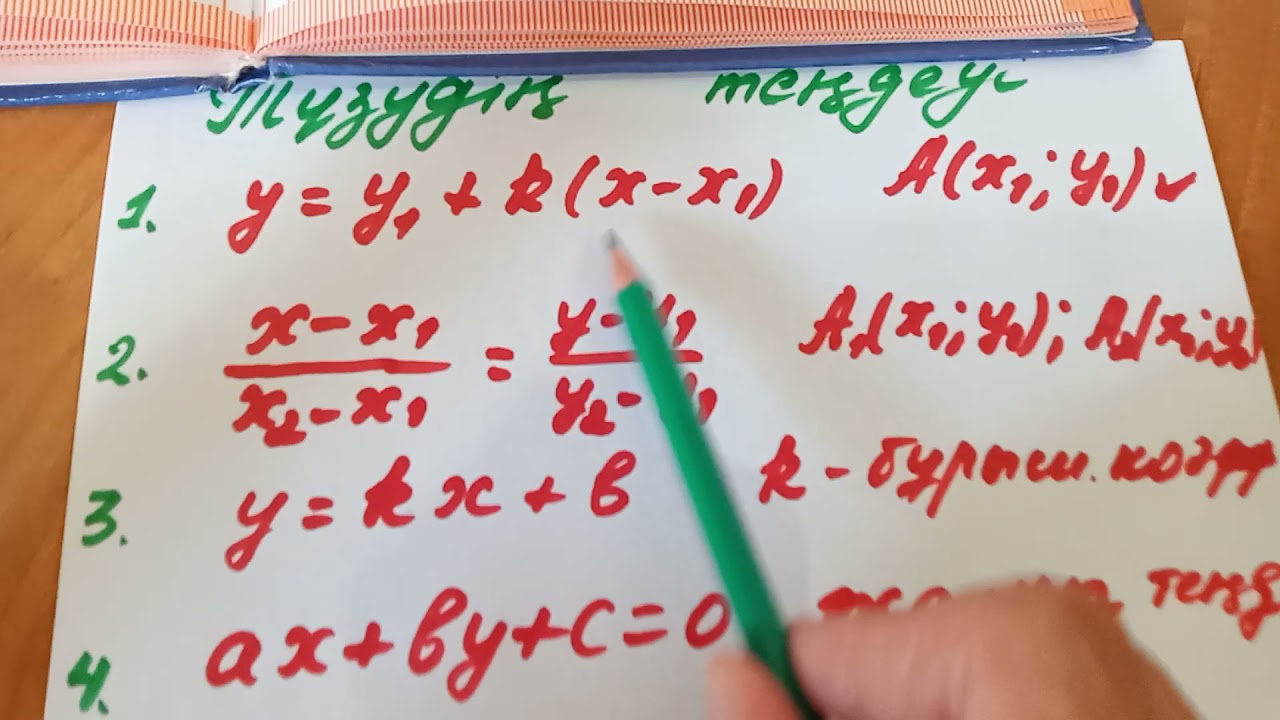 Түзудің теңдеуі
1. y = y₁ + k(x - x₁) A(x₁; y₁)
2. (x - x₁)/(x₂ - x₁) = (y - y₁)/(y₂ - y₁) A₁(x₁; y₁); A₂(x₂; y₂)
3. y = kx + b k - бұрыш. коэфф
4. ax + by + c = 0 теңд